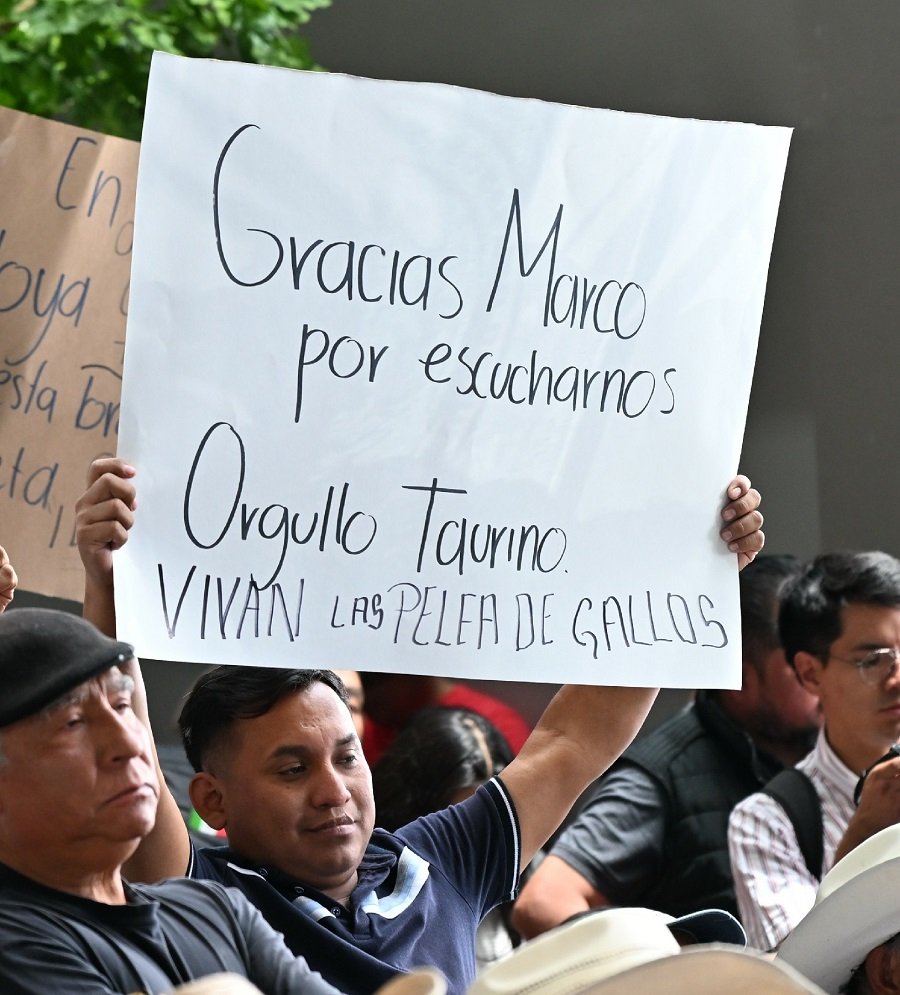 En
oya
esta
Gracias Marco
por escucharnos
Orgullo Taurino.
VIVAN LAS PELEA DE GALLOS